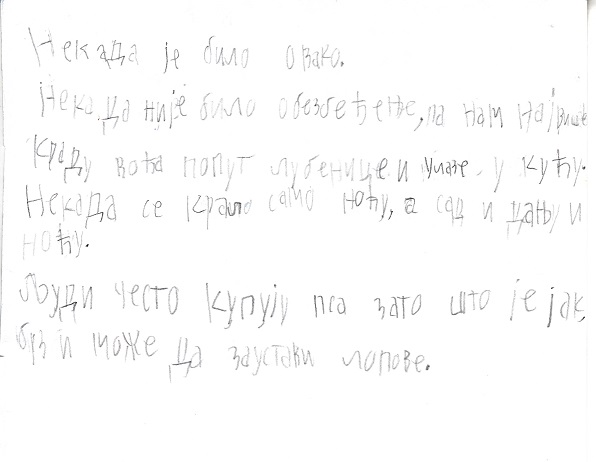 Некада је било овако.
Некада није било обезбеђење, па нам највише
краду воћа попут лубенице и улазе у кућу.
Некада се крало само ноћу, а сад и дању и
ноћу.
Људи често купују пса зато што је јак,
брз и може да заустави лопове.